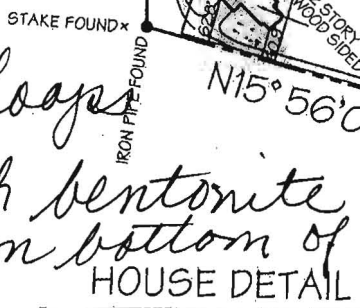 STAKE FOUND
E STORY
WOOD SIDED
628
N15° 56'0
IRON PIPE FOUND
loops
h bentonite
n bottom of
HOUSE DETAIL